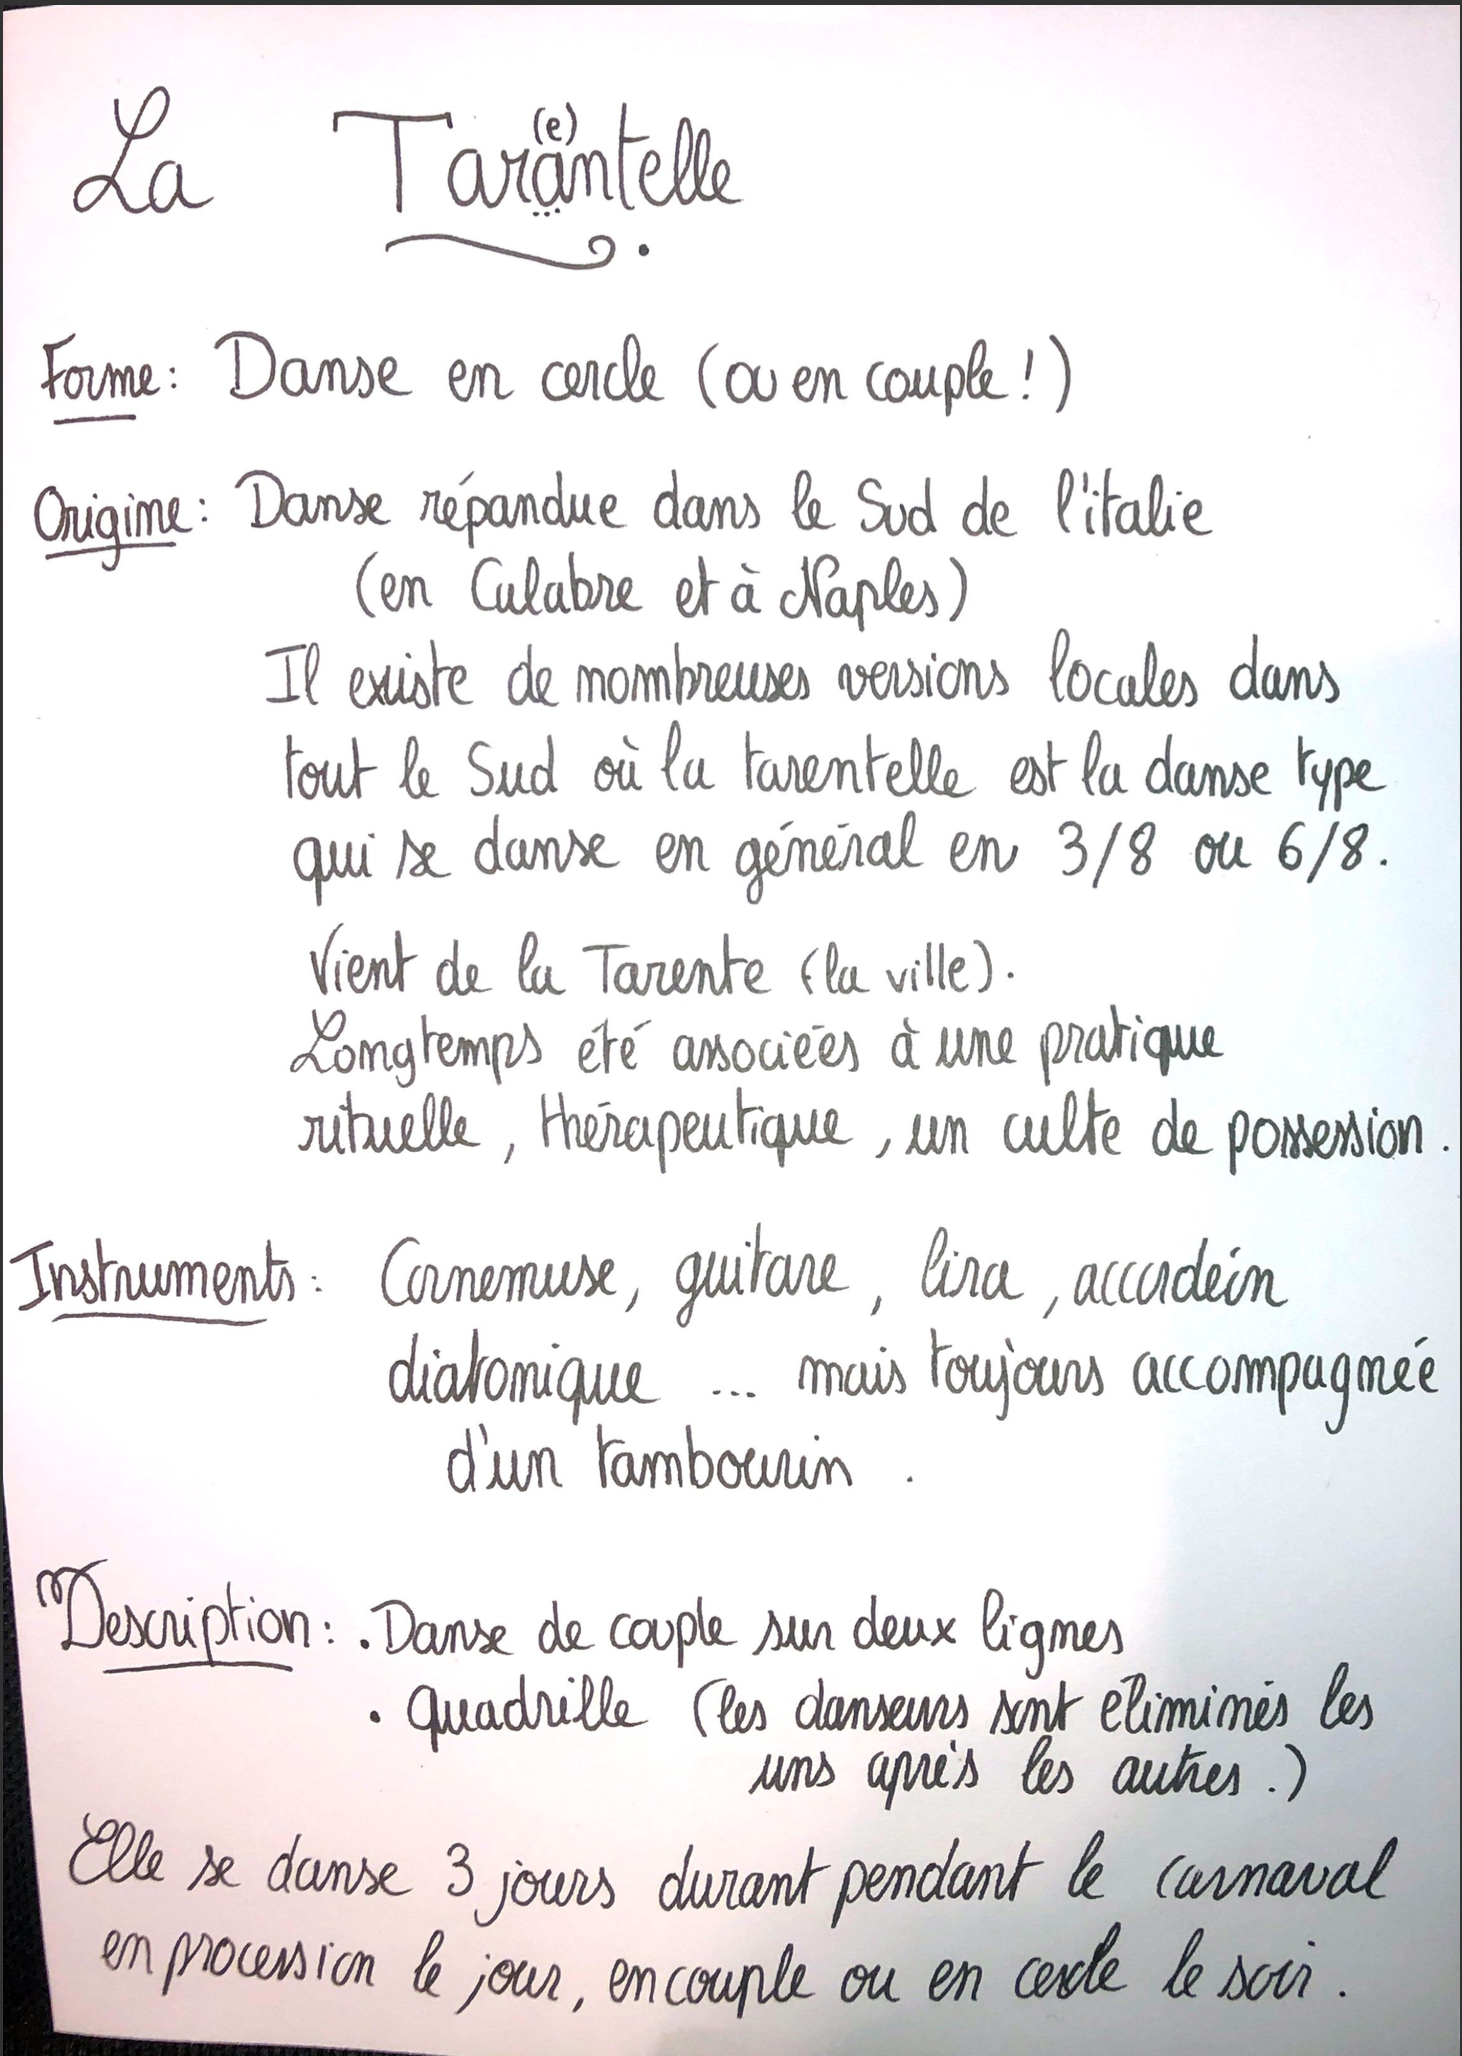 La Tarantelle
(e)
Forme : Danse en cercle (ou en couple !)
Origine : Danse répandue dans le Sud de l'italie
(en Calabre et à Naples)
Il existe de nombreuses versions locales dans
tout le Sud où la tarentelle est la danse type
qui se danse en général en 3/8 ou 6/8.
Vient de la Tarente (la ville).
Longtemps été associées à une pratique
rituelle, thérapeutique, un culte de possession.
Instruments : Cornemuse, guitare, lira, accordéon
diatonique ... mais toujours accompagnée
d'un tambourin.
Description : . Danse de couple sur deux lignes
. quadrille (les danseurs sont éliminés les
uns après les autres.)
Elle se danse 3 jours durant pendant le carnaval
en procession le jour, en couple ou en cercle le soir.